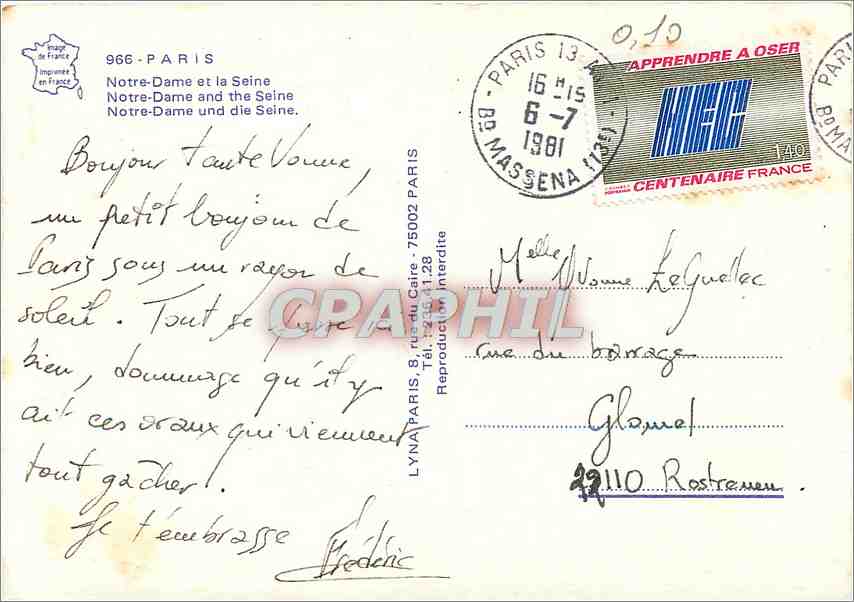 Image
de France
Imprimée
en France
966 - PARIS
Notre-Dame et la Seine
Notre-Dame and the Seine
Notre-Dame und die Seine.
Bonjour tante Yvonne,
un petit bonjour de
Paris sous un rayon de
soleil. Tout se passe
bien, dommage qu'il y
ait ces oraux qui viennent
tout gâcher.
Je t'embrasse
Frédéric
LYNA PARIS, 8, rue du Caire - 75002 PARIS
Tél. : 236.41.28
Reproduction interdite
0,10
PARIS 13
16 H 15
6-7
1981
BD MASSENA (13E)
APPRENDRE A OSER
HEC
1,40
CENTENAIRE FRANCE
PARI
BD MA
Melle Yvonne Le Guellec
rue du barrage
Glomel
22110 Rostrenen.
CPAPHIL